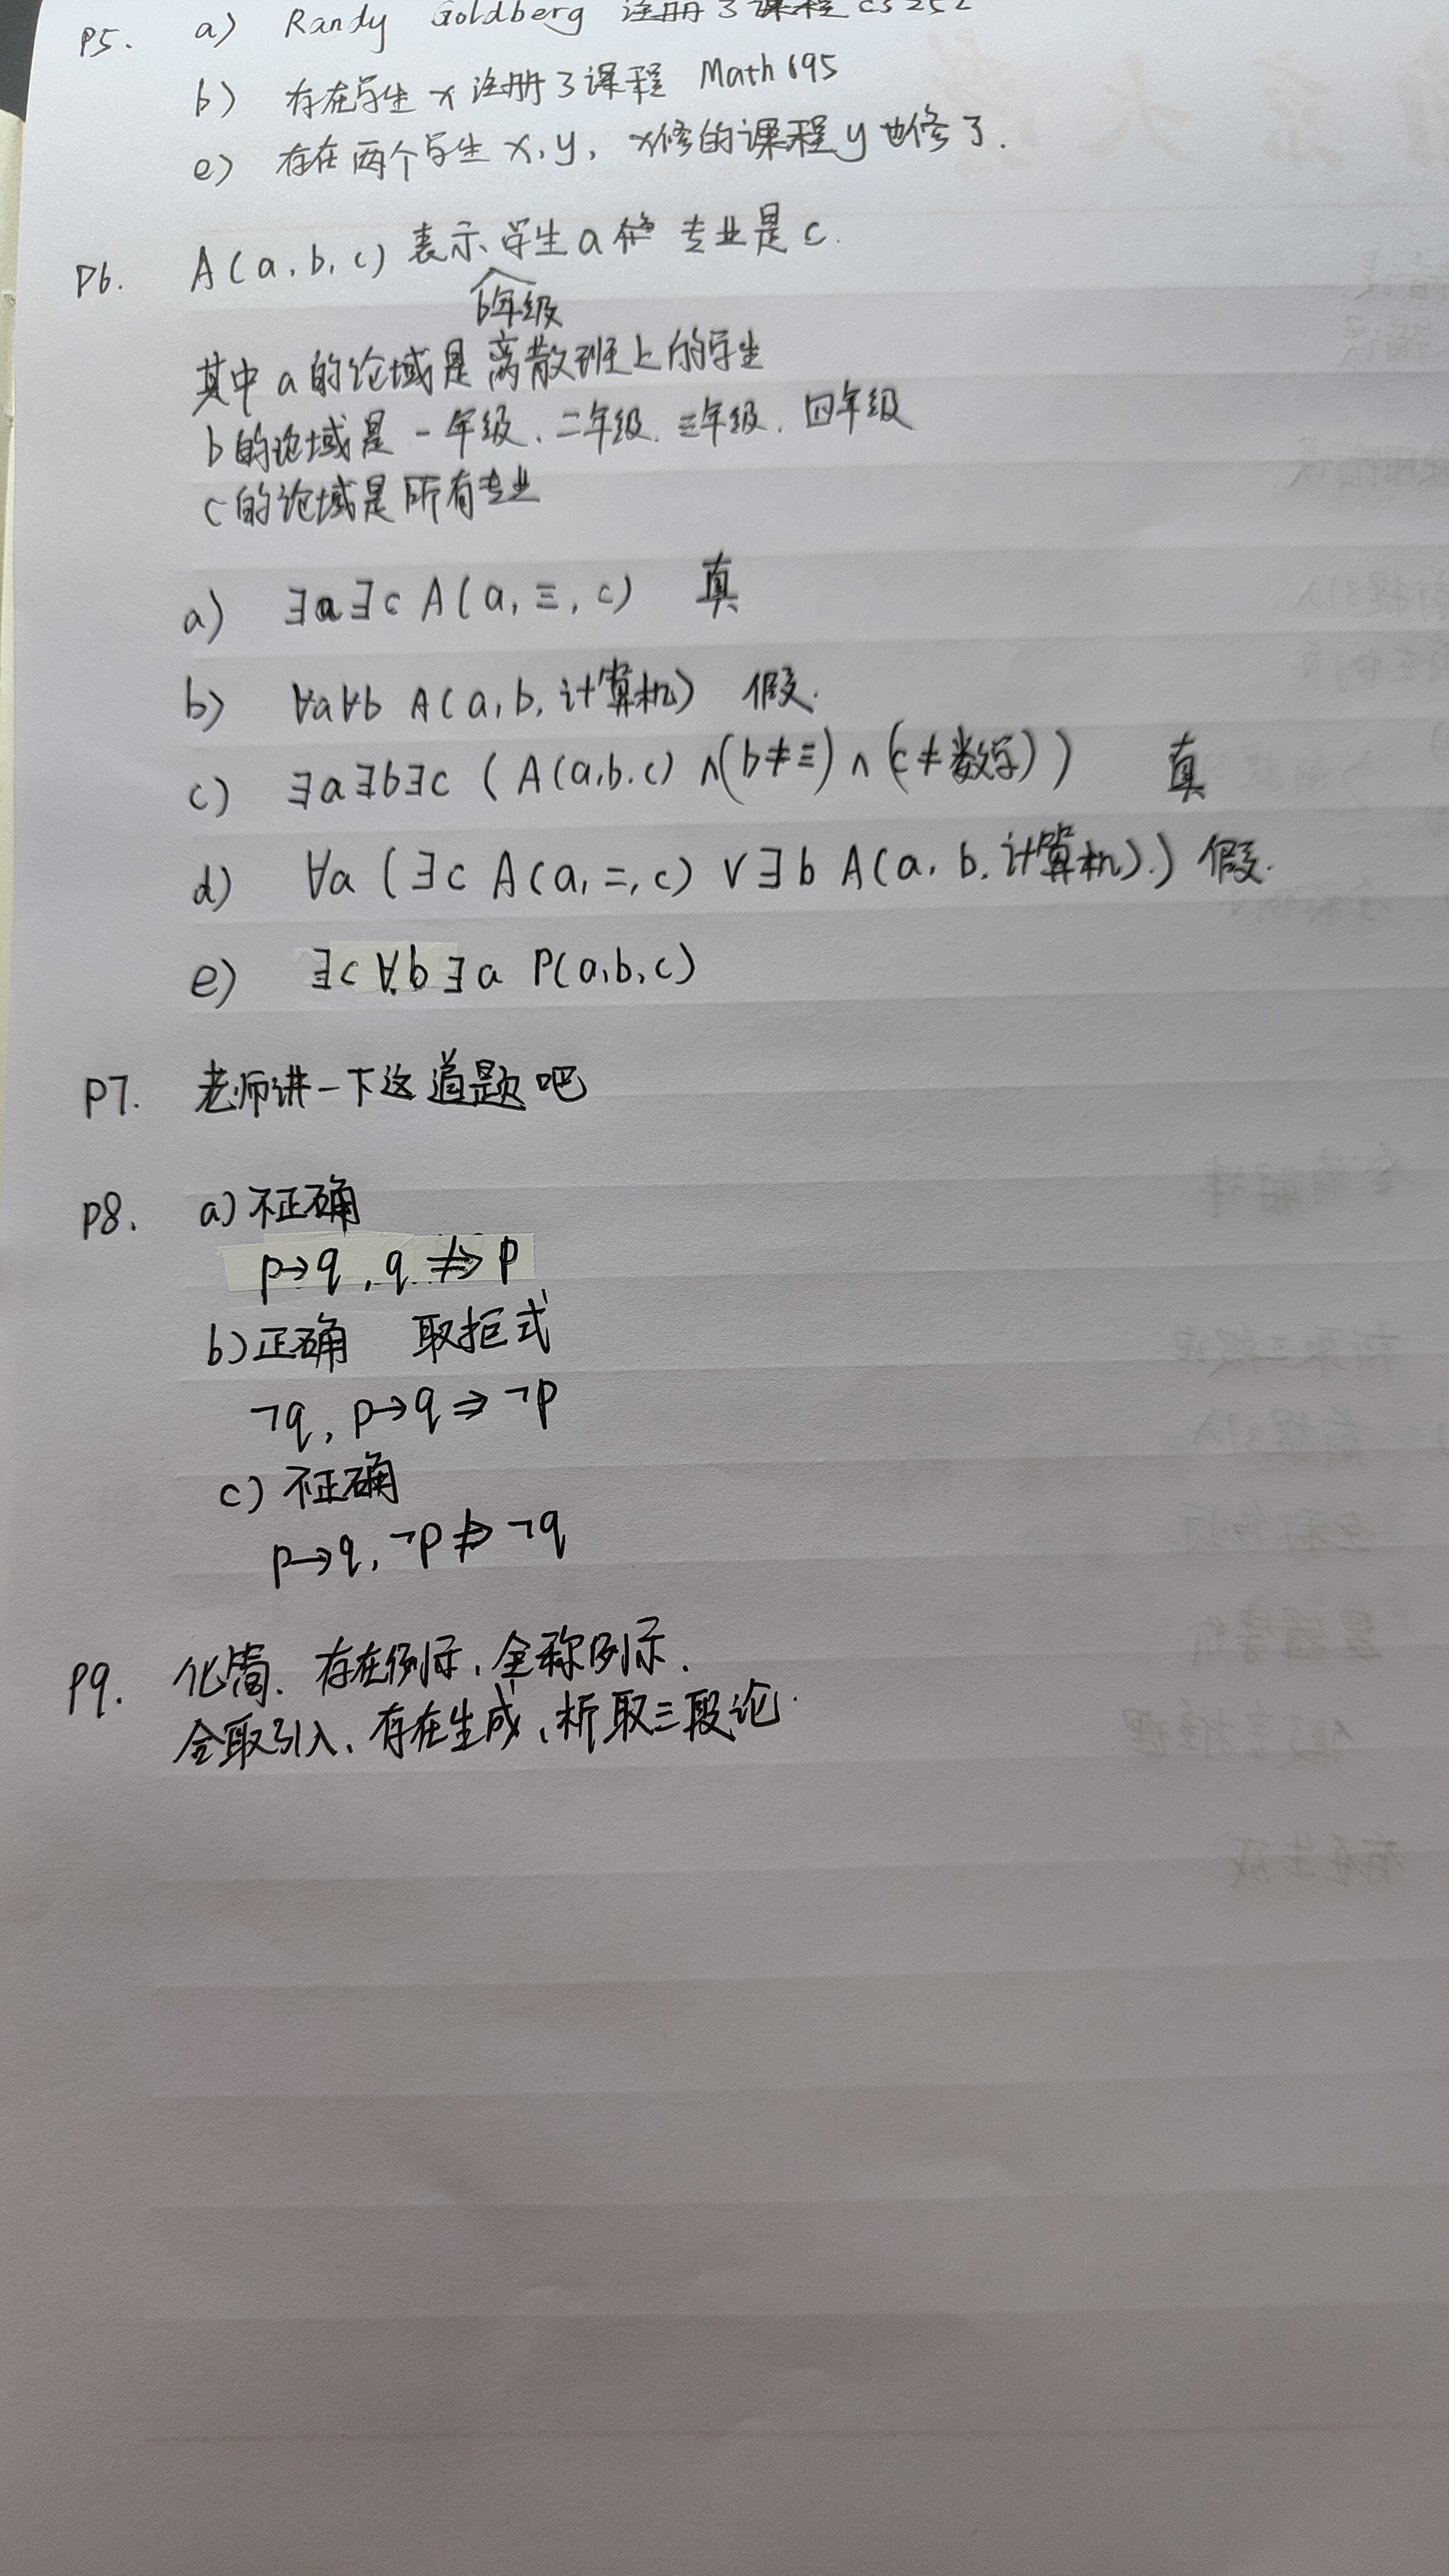 P5. a) Randy Goldberg 注册了课程 CS252
b) 存在学生 x 注册了课程 Math 695
e) 存在两个学生 x, y, x修的课程 y 也修了.
P6. A(a, b, c) 表示学生a 专业是 c.
b年级
其中 a 的论域是离散班上的学生
b的论域是一年级、二年级、三年级、四年级
c的论域是所有专业
a) ∃a∃c A(a, 三, c) 真
b) ∀a∀b A(a, b, 计算机) 假.
c) ∃a∃b∃c (A(a,b,c) ∧(b≠三) ∧ (c≠数学)) 真
d) ∀a (∃c A(a, 二, c) ∨ ∃b A(a, b, 计算机).) 假.
e) ∃c ∀b ∃a P(a,b,c)
P7. 老师讲一下这道题吧
P8. a) 不正确
p→q, q ⇏ p
b) 正确 取拒式
¬q, p→q ⇒ ¬p
c) 不正确
p→q, ¬p ⇏ ¬q
P9. 化简、存在例示、全称例示、
合取引入、存在生成、析取三段论.